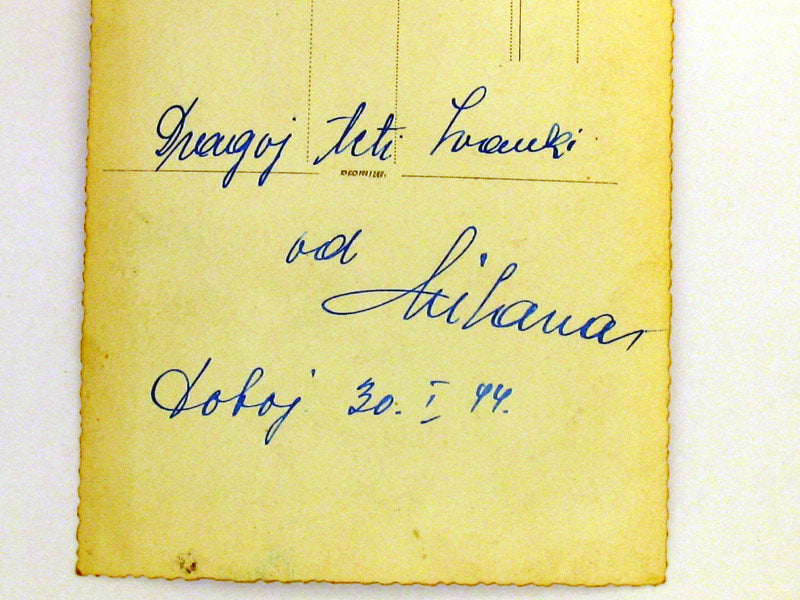 Dragoj teti Ivanki
od Milana
Doboj 30. I 44.